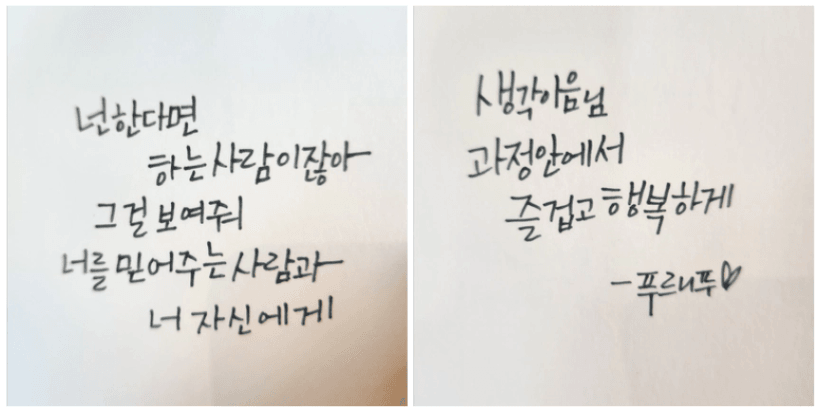 넌한다면
하는사람이잖아
그걸보여줘
너를믿어주는사람과
너 자신에게
생각이음님
과정안에서
즐겁고행복하게
-푸르니푸♡